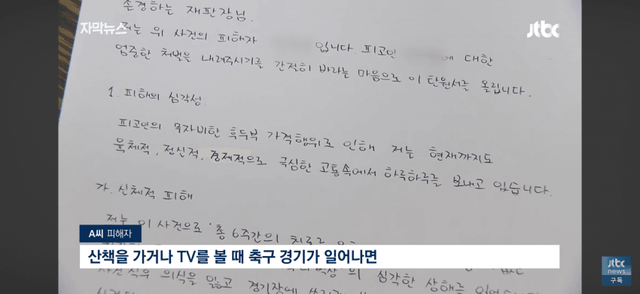 자막뉴스
jtbc
존경하는 재판장님.
저는 위 사건의 피해자 입니다. 피고인 에 대한
엄중한 처벌을 내려주시기를 간절히 바라는 마음으로 이 탄원서를 올립니다.
1. 피해의 심각성
피고인의 무자비한 후두부 가격행위로 인해 저는 현재까지도
육체적, 정신적, 경제적으로 극심한 고통속에서 하루하루를 보내고 있습니다.
가. 신체적 피해
저는 이 사건으로 총 6주간의 치료가
A씨 피해자
산책을 가거나 TV를 볼 때 축구 경기가 일어나면
심각한 상해를
의식을 잃고 경기장에
jtbc
news
구독